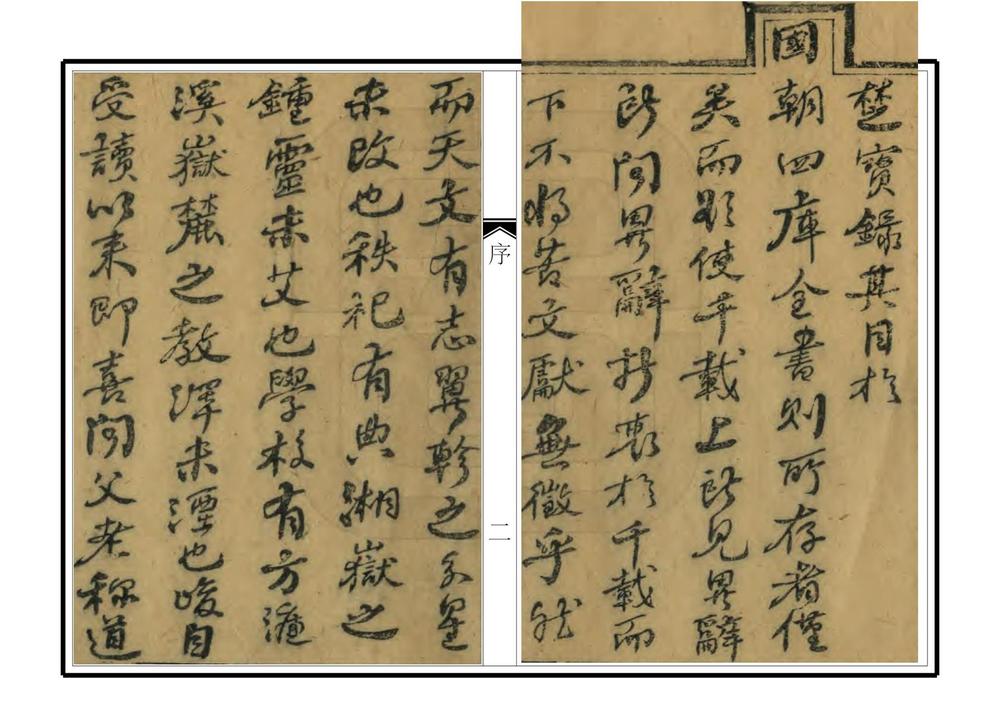 楚寶錄其目於
國朝四庫全書則所存者僅
矣而欲使千載上所見異辭
所聞異辭於千載而
下不將苦文獻無徵乎然
序
二
而天文有志翼軫之分星
未改也秩祀有典湘嶽之
鍾靈未艾也學校有方濂
溪嶽麓之教澤未湮也峻自
受讀以來即喜聞父老稱道